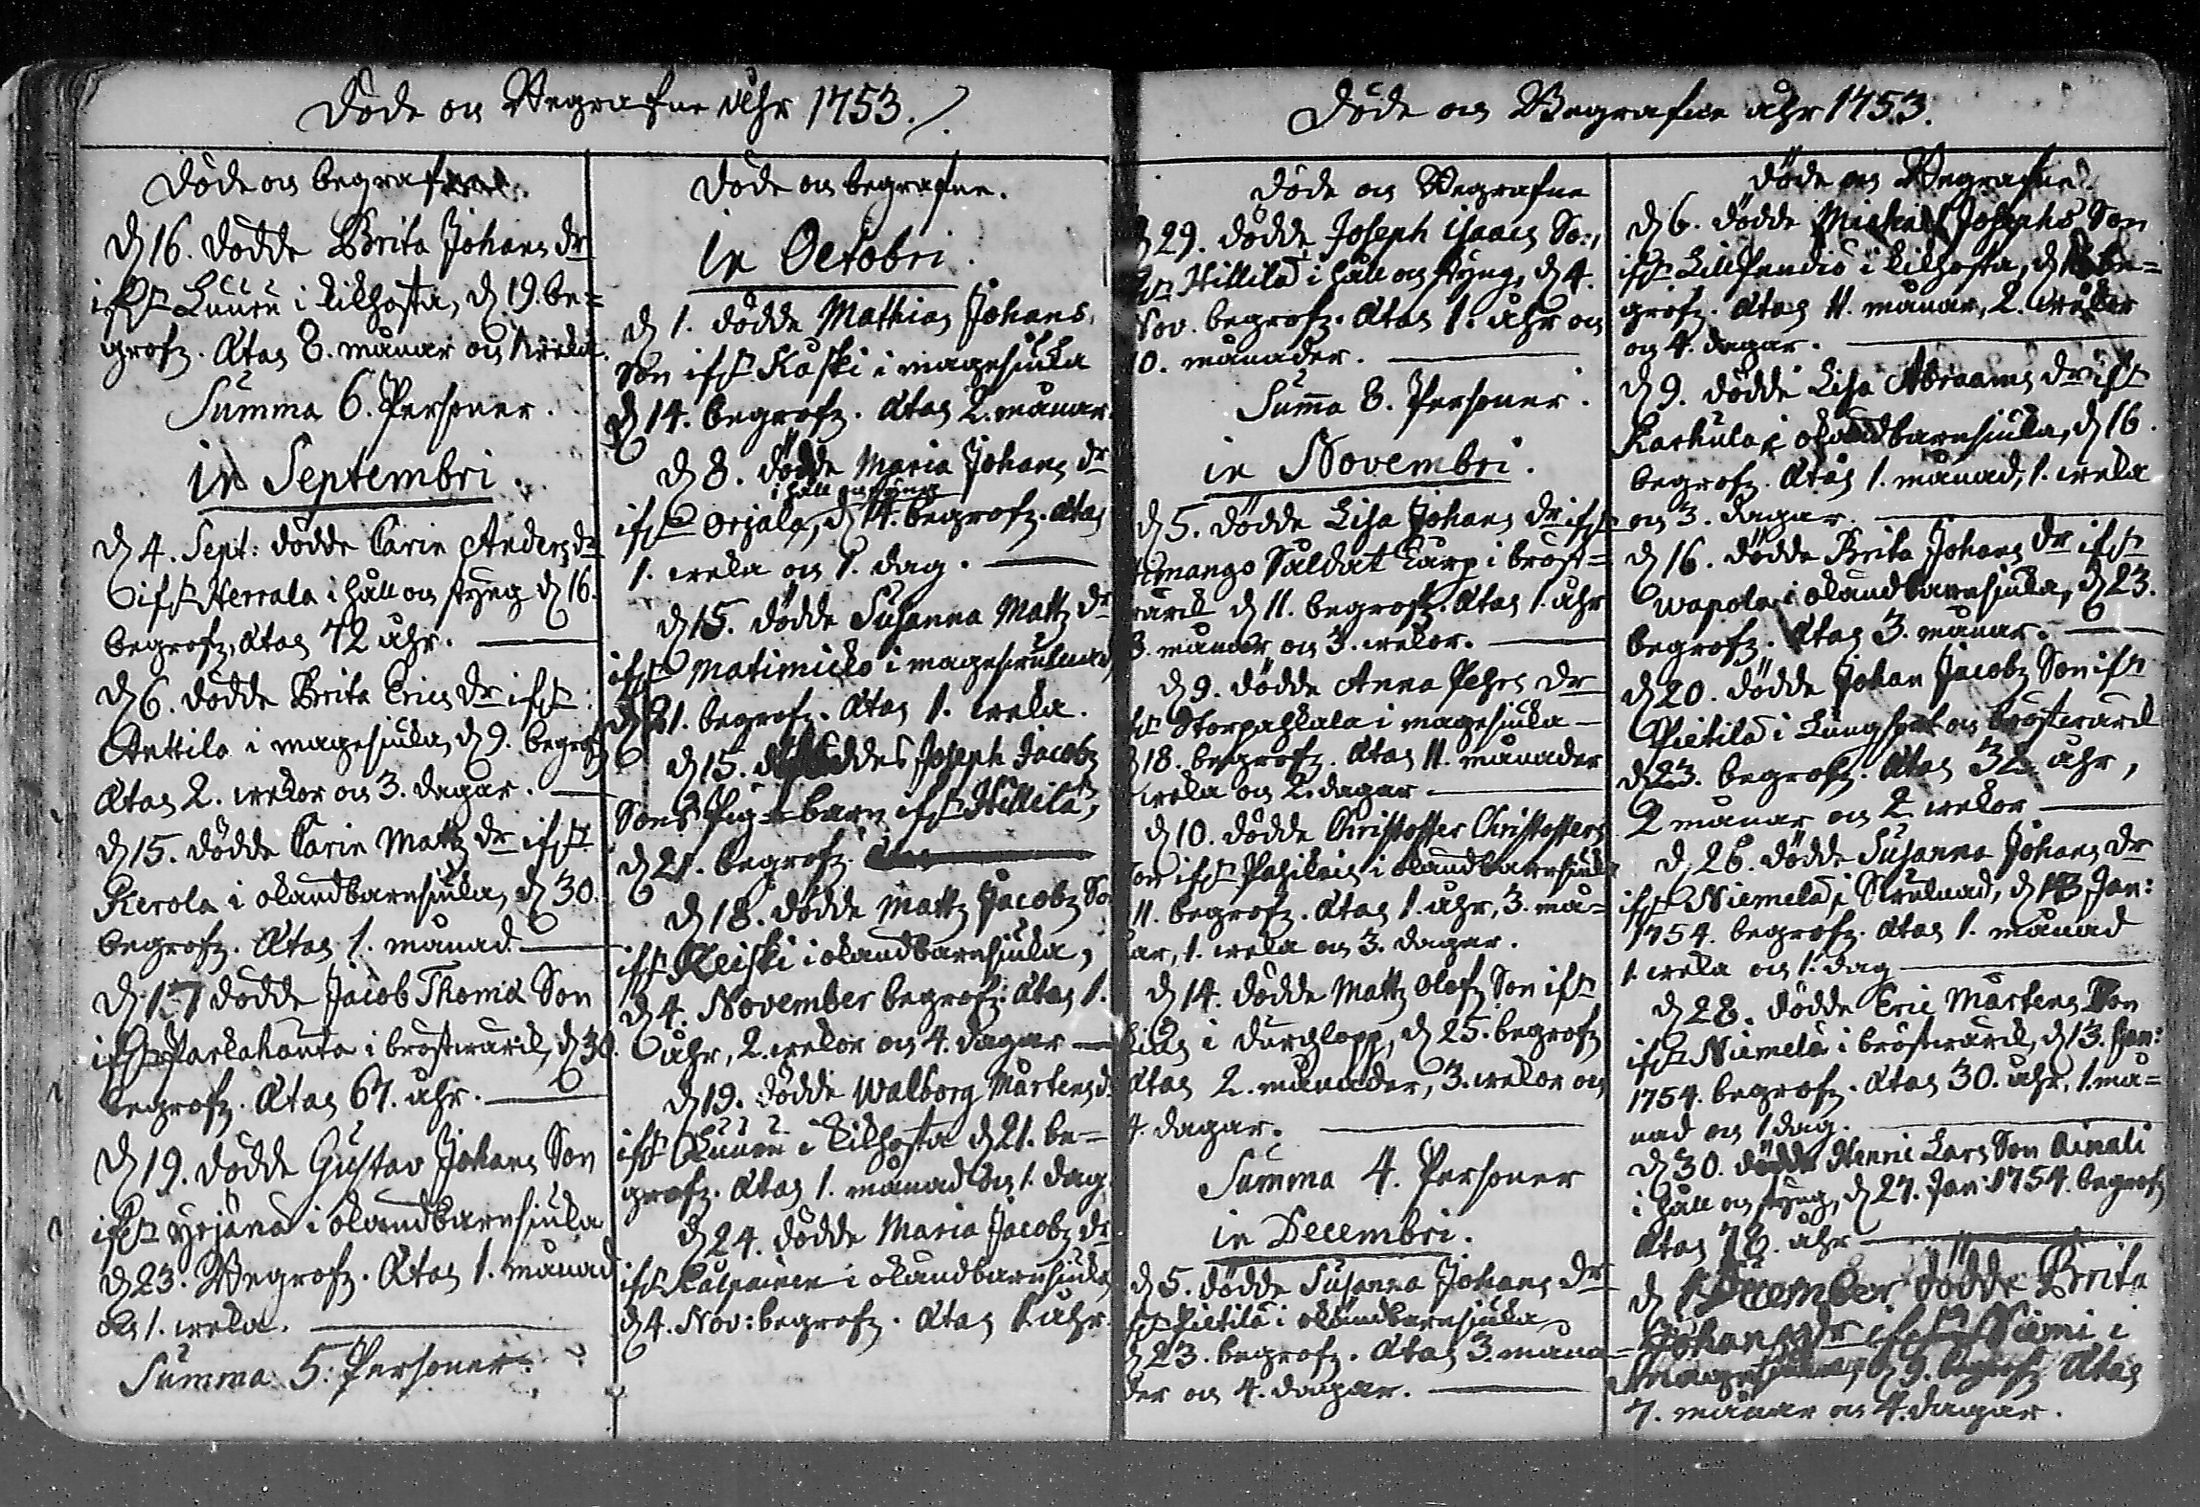 Döde och Begrafne Åhr 1753.
Döde och begrafne.
D 16. dödde Brita Johans dr
ifr Luuru i kikhosta, D 19. be=
grofz. Ætas 8. månar och 1 weka.
Summa 6. Personer.
in Septembri.
D 4. Sept: dödde Carin Anders dr
ifr Herrala i håll och styng D 16.
begrofz, Ætas 72 åhr.
D 6. dödde Brita Erics dr ifr
Anttila i magesiuka, D 9. begrofz
Ætas 2. wekor och 3. dagar.
D 15. dödde Carin Matz dr ifr
Kerola i okändbarnsiuka, D 30.
begrofz. Ætas 1. månad.
D 17 dödde Jacob Thomæ Son
ifr Parkahanta i bröstwärk, D 30.
begrofz. Ætas 67. åhr.
D 19. dödde Gustav Johans Son
ifr Yrjänä i okändbarnsiuka
D 23. Begrofz. Ætas 1. månad
och 1. weka.
Summa 5. Personer.
Döde och begrafne.
in Octobri.
D 1. dödde Mathias Johans
Son ifr Koski i magesiuka
D 14. begrofz. Ætas 2. månar.
D 8. dödde Maria Johans dr
i håll och styng
ifr Orjala, D 14. begrofz. Ætas
1. weka och 1. dag.
D 15. dödde Susanna Matz dr
ifr Matimicko i
D 21. begrofz. Ætas 1. weka.
D 15. Joseph Jacobz
Sons barn ifr Hillilä,
D 21. begrofz.
D 18. dödde Matz Jacobz So
ifr Keiski i okändbarnsiuka,
D 4. November begrofz. Ætas 1.
åhr, 2. wekor och 4. dagar
D 19. dödde Walborg Mårtens d.
ifr Luuru i kikhosta D 21. be=
grofz. Ætas 1. månad och 1. dag
D 24. dödde Maria Jacobz dr
ifr i okändbarnsiuka
D 4. Nov: begrofz. Ætas åhr.
Döde och Begrafne åhr 1753.
Döde och Begrafne
D 29. dödde Joseph Isaacs So:,
ifr Hillilä i håll och styng, D 4.
Nov. begrofz. Ætas 1. åhr och
10. månader.
Suma 8. Personer.
in Novembri.
D 5. dödde Lisa Johans dr ifr
Saldat Karp i bröst=
wärk D 11. begrofz. Ætas 1. åhr
3. månar och 3. wekor.
D 9. dödde Anna Pehrs dr
ifr Storpahkala i magesiuka
D 18. begrofz. Ætas 11. månader
weka och 2. dagar
D 10. dödde Christoffer Christoffers
son ifr i okändbarnsiuka
11. begrofz. Ætas 1. åhr, 3. må=
nar, 1. weka och 3. dagar.
D 14. dödde Matz Olofz Son ifr
i durchlopp, D 25. begrofz
Ætas 2. månader, 3. wekor och
4. dagar.
Summa 4. Personer
in Decembri.
D 5. dödde Susanna Johans dr
ifr Pietilä i okändbarnsiuka
D 23. begrofz. Ætas 3. måna=
der och 4. dagar.
Döde och Begrafne
D 6. dödde Michael Josephs Son
ifr Lill i kikhosta, D be=
grofz. Ætas 11. månar, 2. wekor
och 4. dagar.
D 9. dödde Lisa Abraams dr ifr
Karhula i okändbarnsiuka, D 16.
begrofz. Ætas 1. månad, 1. weka
och 3. dagar.
D 16. dödde Brita Johans dr ifr
Wapola i okändbarnsiuka, D 23.
begrofz. Ætas 3. månar.
D 20. dödde Johan Jacobz Son ifr
Pietilä i Lungsot och bröstwärk
D 23. begrofz. Ætas åhr,
2 månar och 2 wekor
D 26. dödde Susanna Johans dr
ifr Niemelä i Skrelnad, D 13 Jan:
1754. begrofz. Ætas 1. månad
1. weka och 1. dag
D 28. dödde Eric Mårtens Son
ifr Niemelä i bröstwärk, D 13. Jan:
1754. begrofz. Ætas 30. åhr, 1. må=
nad och 1 dag.
D 30. dödde Henric Lars Son Ainali
i håll och styng, D 27. Jan: 1754. begrofz
Ætas 78. åhr
D December dödde Brita
Johans dr ifr Niemi i
magesiuka, D 9. begrofz Ætas
7. månar och 4. dagar.